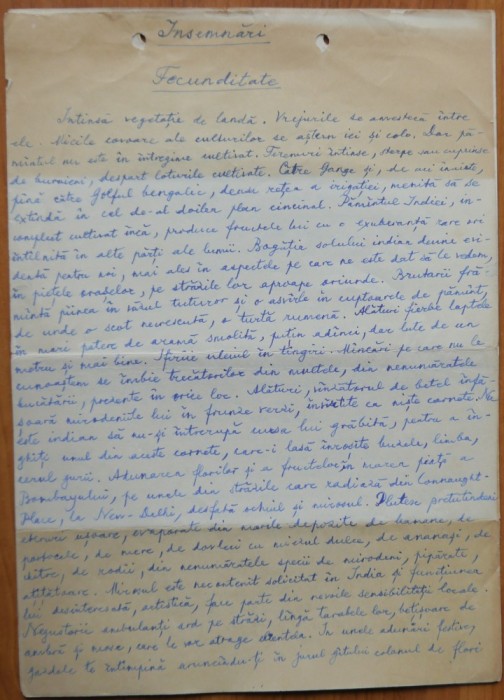 Însemnări
Fecunditate
Întinsă vegetație de landă. Vrejurile se agresteză între
ele. Micile covoare ale culturilor se aștern ici și colo. Dar pă-
mîntul nu este în întregime cultivat. Terenuri întinse, sterpe sau cuprinse
de buruieni, despart loturile cultivate. Către Gange și, de aci înainte,
pînă către Golful bengalic, densa rețea a irigației, menită să se
extindă în cel de-al doilea plan cincinal. Pămîntul Indiei, in-
complect cultivat încă, produce fructele lui cu o exuberanță care nu-i
întîlnită în alte părți ale lumii. Bogăția solului indian devine evi-
dentă pentru noi, mai ales în aspectele pe care ne este dat să le vedem,
în piețele orașelor, pe străzile lor aproape oriunde. Brutarii fră-
mîntă pîinea în văzul tuturor și o asvîrle în cuptoarele de pămînt,
de unde o scot necrescută, o turtă rumenă. Alături fierbe laptele
în mari patere de aramă smolită, puțin adînci, dar late de un
metru și mai bine. Sfîrîie uleiul în tingiri. Mîncări pe care nu le
cunoaștem se îmbie trecătorilor din multele, din nenumăratele
bucătării, prezente în orice loc. Alături, vînzătorul de betel înfă-
șoară mirodeniile lui în frunze verzi, învîrtite ca niște cornete. Nu
este indian să nu-și întrerupă cursa lui grăbită, pentru a în-
ghiți unul din aceste cornete, care-i lasă înroșite buzele, limba,
cerul gurii. Adunarea florilor și a fructelor în marea piață a
Bombayului, pe unele din străzile care radiază din Connaught-
Place, la New-Delhi, desfată ochiul și mirosul. Plutesc pretutindeni
izuri ușoare, evaporate din marile depozite de banane, de
portocale, de mere, de dovleci cu miezul dulce, de ananași, de
chitre, de rodii, din nenumăratele specii de mirodenii, piparate,
ațîțătoare. Mirosul este necontenit solicitat în India și funcțiunea
lui desinteresată, estetică, face parte din nevoile sensibilității locale.
Negustorii ambulanți ard pe străzi, lîngă tarabele lor, bețișoare de
ambră și mosc, care le vor atrage clientela. În unele adunări festive,
gazdele te întîmpină aruncîndu-ți în jurul gîtului colanul de flori